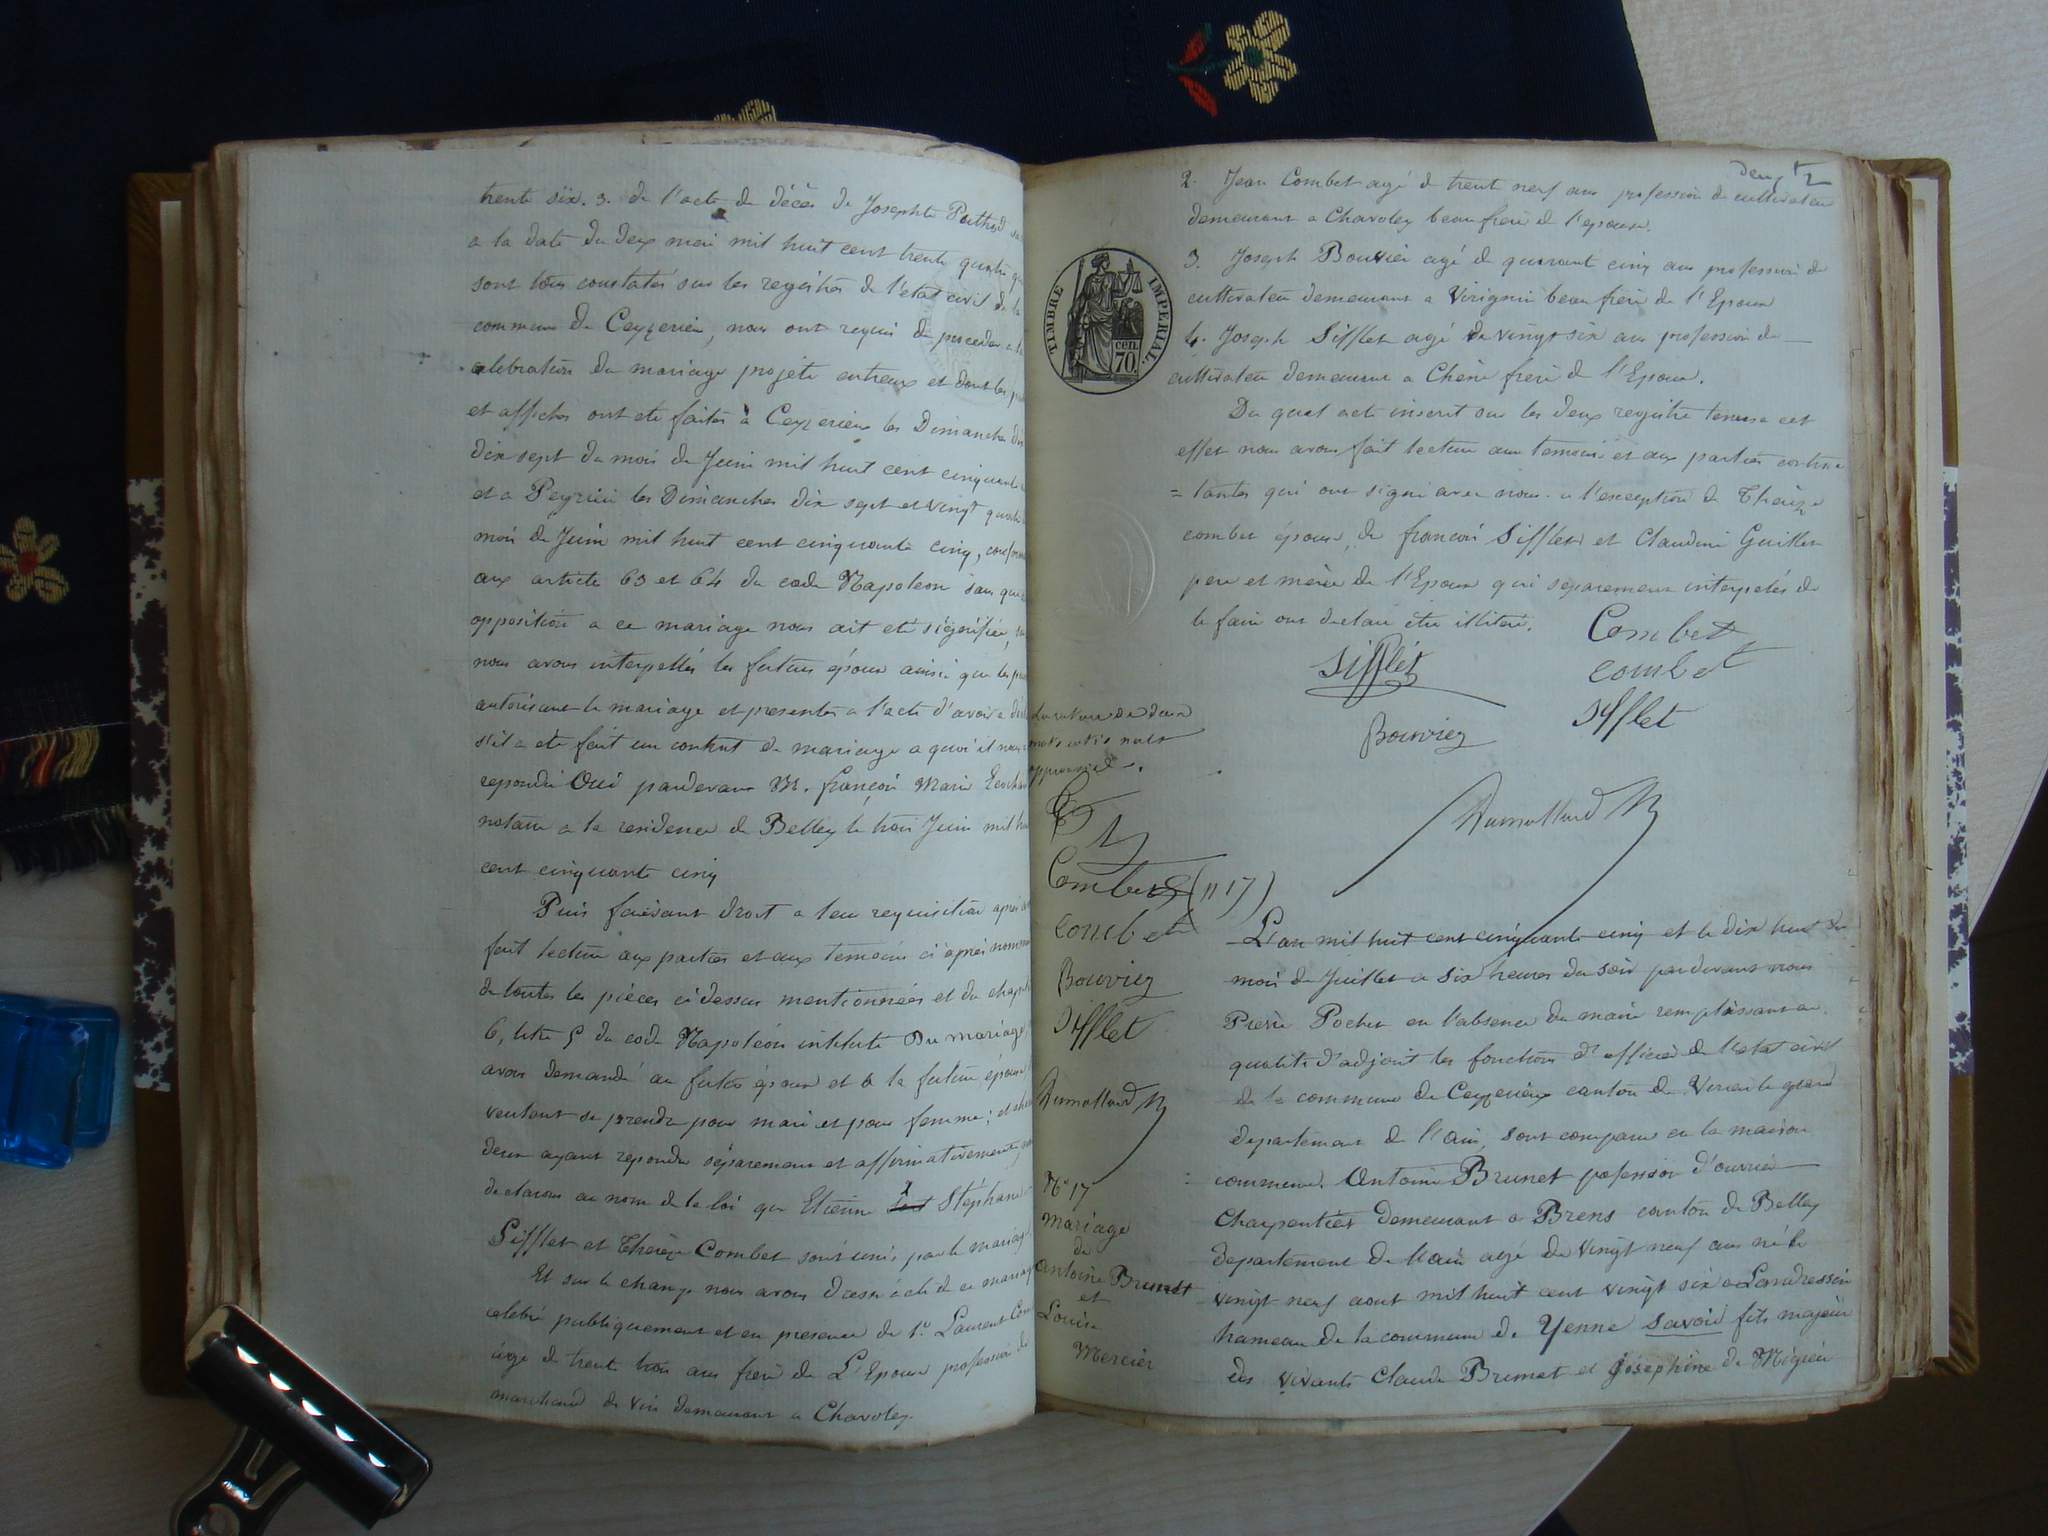 trente six. 3. de l'acte de décès de Josephte
a la date du deux mai mil huit cent trente quatre
sont tous constatés sur les registres de l'etat civil de la
commune de Ceyzerieu, nous ont requis de proceder a la
celebration du mariage projeté entreux et dont les
et affiches ont eté faites à Ceyzerieu les Dimanches dix
dix sept du mois de Juin mil huit cent cinquante
et a Peyrieu les Dimanches dix sept et vingt quatre
mois de Juin mil huit cent cinquante cinq,
aux article 63 et 64 du code Napoleon sans que
opposition a ce mariage nous ait eté signifiée,
nous avons interpellés les futurs époux ainsi que les
autorisant le mariage et presentes a l'acte d'avoir a
s'il a eté fait un contrat de mariage a quoi il nous
repondu Oui pardevant M. françois Marie
notaire a la residence de Belley le trois Juin mil
cent cinquante cinq
Puis faisant droit a leur requisition après
fait lecture aux parties et aux temoins ci après
de toutes les pièces ci dessus mentionnées et du
6, titre 5 du code Napoléon intitulé Du mariage
avons demandé au futur époux et a la future épouse
veulent se prendre pour mari et pour femme; et
deux ayant repondu séparement et affirmativement,
declarons au nom de la loi que Etienne Stéphane
Sifflet et Thérèze Combet sont unis par le mariage
Et sur le champ nous avons dressé acte de ce mariage
celebré publiquement et en presence de 1° Laurent
agé de trente trois ans frere de L'Epouse profession de
marchand de vin demeurant a Chavoley.
deux 2
2. Jean Combet agé de trent neuf ans profession de cultivateur
demeurant a Chavoley beau frere de l'epouse.
3. Joseph Bouvier agé de quarant cinq ans profession de
cultivateur demeurant a Virignin beau frere de l'Epoux
4. Joseph Sifflet agé de vingt six ans profession de
cultivateur demeurant a Chêne frere de l'Epoux.
TIMBRE IMPERIAL.
cen.
70.
Du quel acte inscrit sur les deux registre tenus a cet
effet nous avons fait lecture aux temoins et aux parties
= tantes qui ont signé avec nous a l'exception de Thérèze
combet épouse, de françois Sifflet et Claudine Guillet
pere et mère de l'Epoux qui séparement interpelés de
le faire ont declaré être illitéré.
Combet
Sifflet
combet
Sifflet
Bouvier
Dumollard
La rature de deux
mots nuls
approuvée.
Combet
combet
Bouvier
Sifflet
Dumollard
(N 17)
N° 17
mariage
de
antoine Brunet
et
Louise
Mercier
L'an mil huit cent cinquante cinq et le dix huit du
mois de Juillet a six heures du soir pardevant nous
Pierre Pochet en l'absence du maire remplissant en
qualité d'adjoint les fonctions d'officier de l'etat civil
de la commune de Ceyzerieu canton de Virieu le grand
departement de l'ain, sont comparu en la maison
commune. Antoine Brunet profession d'ouvrier
charpentier demeurant a Brens canton de Belley
departement de l'ain agé de vingt neuf ans né le
vingt neuf aout mil huit cent vingt six a Landressin
hameau de la commune de Yenne savoie fils majeur
des vivants Claude Brunet et joséphine de Migieu